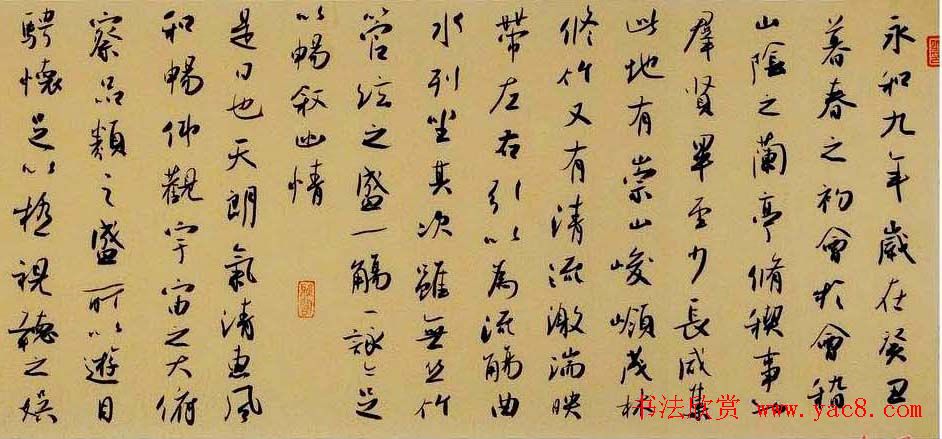 永和九年歲在癸丑
暮春之初會於會稽
山陰之蘭亭脩稧事也
羣賢畢至少長咸集
此地有崇山峻嶺茂林
修竹又有清流激湍映
帶左右引以為流觴曲
水列坐其次雖無絲竹
管弦之盛一觴一詠亦足
以暢敘幽情
是日也天朗氣清惠風
和暢仰觀宇宙之大俯
察品類之盛所以遊目
騁懷足以極視聽之娛
书法欣赏 www.yac8.com